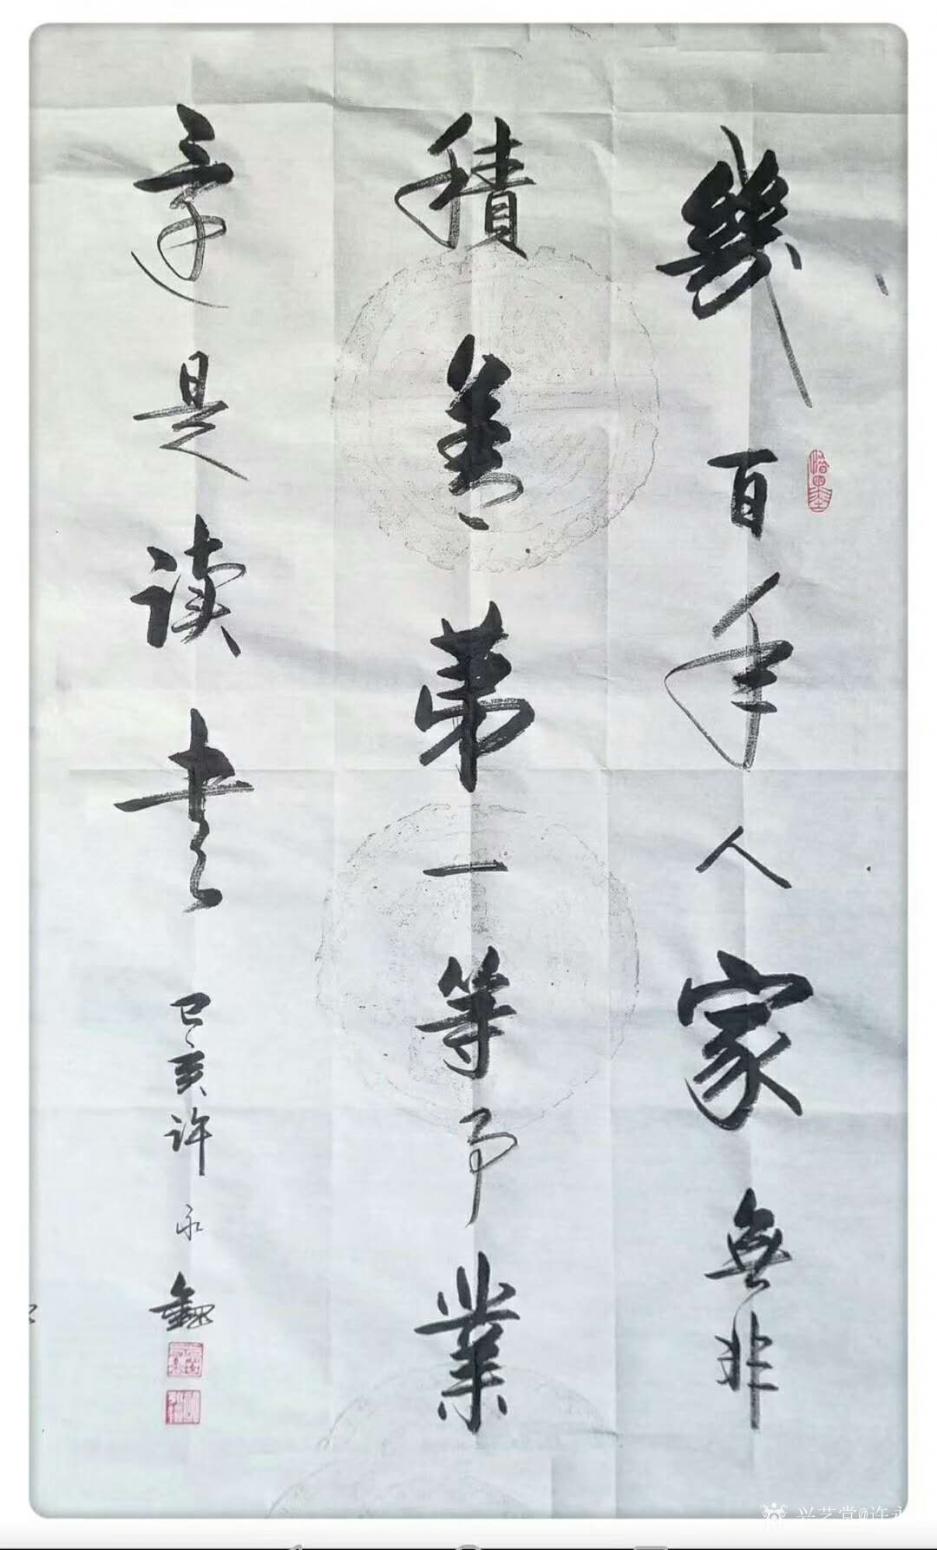 幾百年人家無非
積善第一等事業
還是读书
己亥许永
兴艺堂@许永